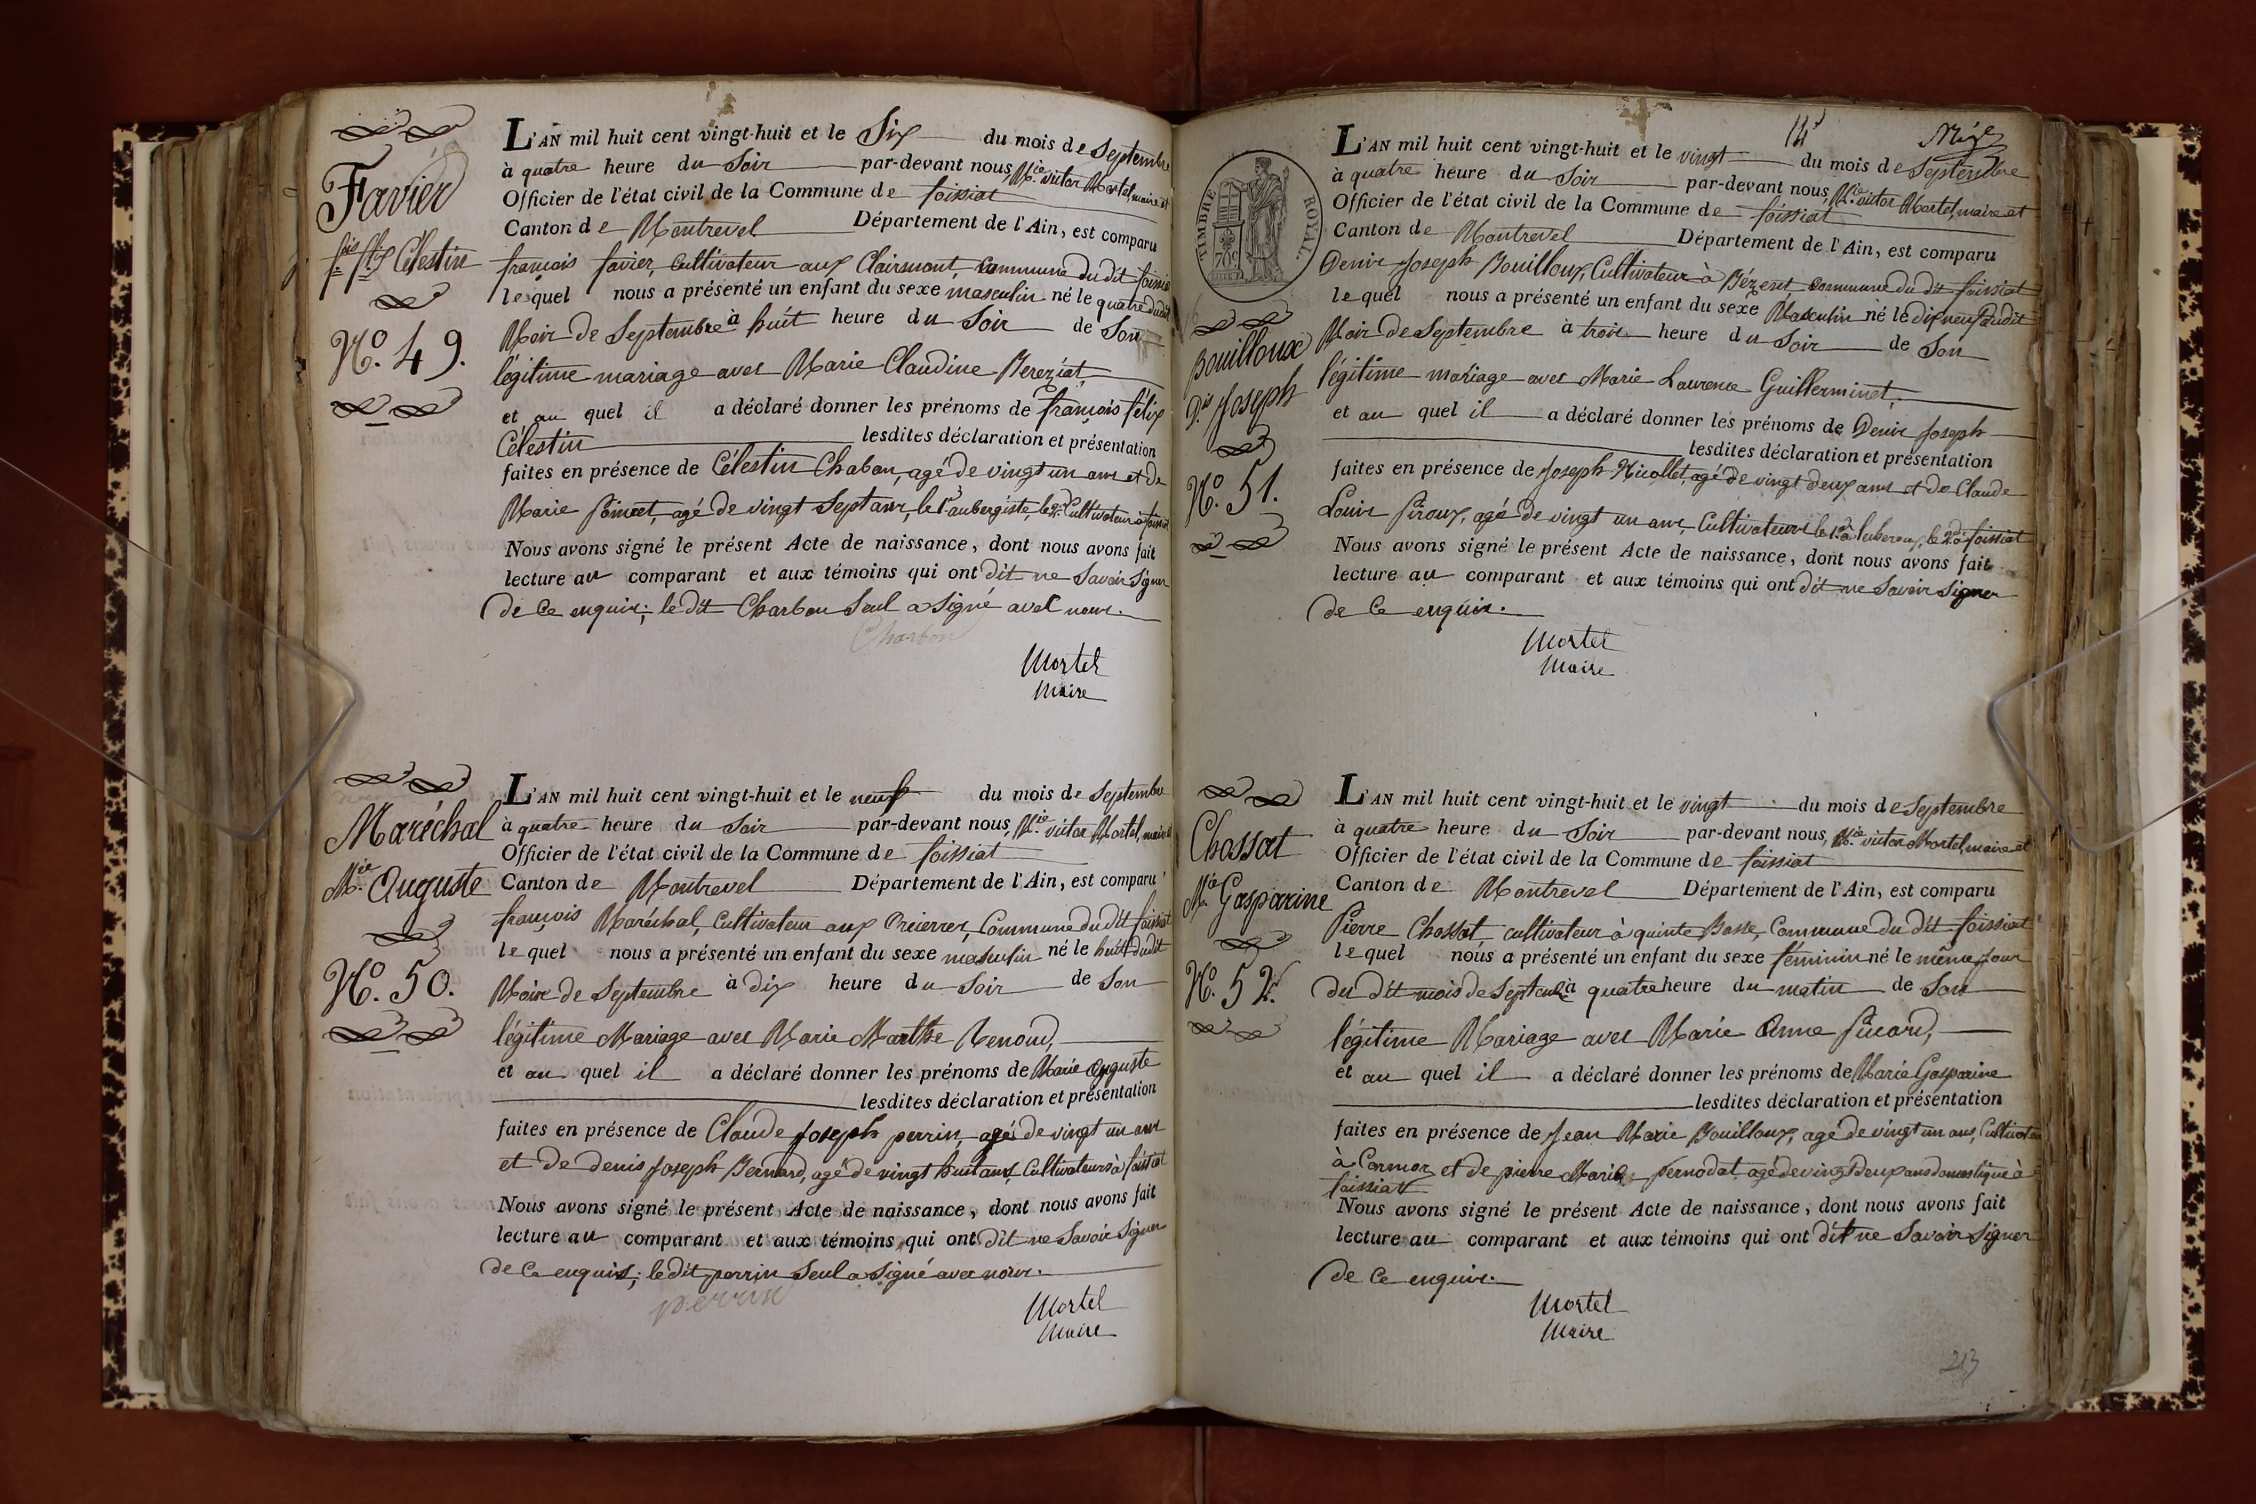 Favier
fçois flix Célestin
No. 49.
L'AN mil huit cent vingt-huit et le Six du mois de Septembre
à quatre heure du Soir par-devant nous, Mie victor Mortel, maire et
Officier de l'état civil de la Commune de foissiat
Canton de Montrevel Département de l'Ain, est comparu
françois favier, Cultivateur aux Clairmont, Commune du dit foissiat
lequel nous a présenté un enfant du sexe masculin né le quatre dudit
Mois de Septembre à huit heure du Soir de Son
légitime mariage avec Marie Claudine Bereziat
et au quel il a déclaré donner les prénoms de françois félix
Célestin lesdites déclaration et présentation
faites en présence de Célestin Chabon, agé de vingt un ans et de
Marie agé de vingt Sept ans, le 1er aubergiste, le 2d Cultivateur à foissiat
Nous avons signé le présent Acte de naissance, dont nous avons fait
lecture au comparant et aux témoins qui ont dit ne Savoir Signer
de Ce enquis; le dit Charbon Seul a Signé avec nous.
Charbon
Mortel
Maire
Maréchal
Mie Auguste
No. 50.
L'AN mil huit cent vingt-huit et le neuf du mois de Septembre
à quatre heure du Soir par-devant nous, Mie victor Mortel, maire et
Officier de l'état civil de la Commune de foissiat
Canton de Montrevel Département de l'Ain, est comparu
françois Maréchal, Cultivateur aux Commune du dit foissiat
lequel nous a présenté un enfant du sexe masculin né le huit dudit
Mois de Septembre à dix heure du Soir de Son
légitime Mariage avec Marie Marthe Renoud,
et au quel il a déclaré donner les prénoms de Marie Auguste
lesdites déclaration et présentation
faites en présence de Claude Joseph perrin, agé de vingt un ans
et de denis Joseph Bernard, agé de vingt huit ans, Cultivateurs à foissiat
Nous avons signé le présent Acte de naissance, dont nous avons fait
lecture au comparant et aux témoins qui ont dit ne Savoir Signer
de Ce enquis; le dit perrin Seul a Signé avec nous.
perrin
Mortel
Maire
14
TIMBRE ROYAL
70c
Bouilloux
Dis Joseph
No. 51.
L'AN mil huit cent vingt-huit et le vingt du mois de Septembre
à quatre heure du Soir par-devant nous, Mie victor Mortel, maire et
Officier de l'état civil de la Commune de foissiat
Canton de Montrevel Département de l'Ain, est comparu
Denis Joseph Bouilloux, Cultivateur à Bézeret Commune du dit foissiat
lequel nous a présenté un enfant du sexe Masculin né le dix neuf dudit
Mois de Septembre à trois heure du Soir de Son
légitime mariage avec Marie Laurence Guillerminet,
et au quel il a déclaré donner les prénoms de Denis Joseph
lesdites déclaration et présentation
faites en présence de Joseph Nicollet, agé de vingt deux ans et de Claude
Louis Piroux, agé de vingt un ans, Cultivateurs le 1er à le 2d à foissiat
Nous avons signé le présent Acte de naissance, dont nous avons fait
lecture au comparant et aux témoins qui ont dit ne Savoir Signer
de Ce enquis.
Mortel
Maire
Chossat
Mie Gasparine
No. 52.
L'AN mil huit cent vingt-huit et le vingt du mois de Septembre
à quatre heure du Soir par-devant nous, Mie victor Mortel, maire et
Officier de l'état civil de la Commune de foissiat
Canton de Montrevel Département de l'Ain, est comparu
Pierre Chossat, cultivateur à quinte Basse, Commune du dit foissiat
lequel nous a présenté un enfant du sexe féminin né le même jour
du dit mois de Septembre à quatre heure du matin de Son
légitime Mariage avec Marie Anne Picard,
et au quel il a déclaré donner les prénoms de Marie Gasparine
lesdites déclaration et présentation
faites en présence de Jean Marie Bouilloux, agé de vingt un ans, Cultivateur
à Cormoz et de pierre Marie Pernodat agé de vingt deux ans domestique à
foissiat
Nous avons signé le présent Acte de naissance, dont nous avons fait
lecture au comparant et aux témoins qui ont dit ne Savoir Signer
de Ce enquis.
Mortel
Maire
213